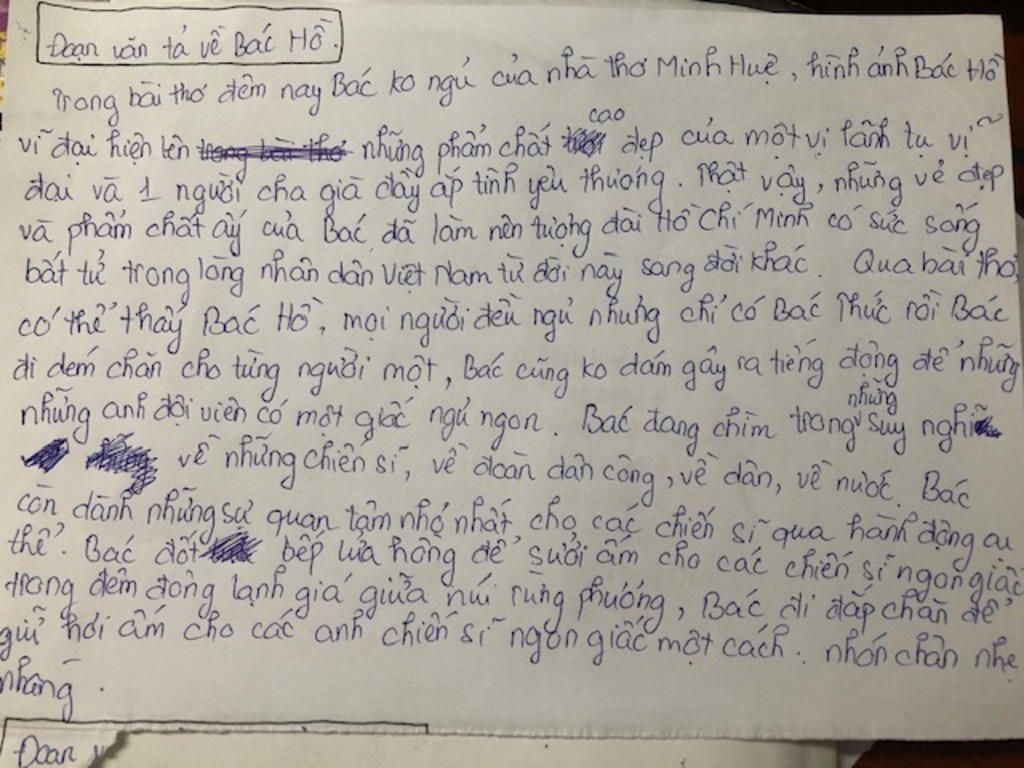 Đoạn văn tả về Bác Hồ.
Trong bài thơ đêm nay Bác ko ngủ của nhà thơ Minh Huệ, hình ảnh Bác Hồ
vĩ đại hiện lên trong bài thơ những phẩm chất cao đẹp của một vị lãnh tụ vĩ
đại và 1 người cha già đầy ắp tình yêu thương. Thật vậy, những vẻ đẹp
và phẩm chất ấy của Bác đã làm nên tượng đài Hồ Chí Minh có sức sống
bất tử trong lòng nhân dân Việt Nam từ đời này sang đời khác. Qua bài thơ,
có thể thấy Bác Hồ, mọi người đều ngủ nhưng chỉ có Bác Thức rồi Bác
đi dém chăn cho từng người một, Bác cũng ko dám gây ra tiếng động để những
những anh đội viên có một giấc ngủ ngon. Bác đang chìm trong những suy nghĩ
về những chiến sĩ, về đoàn dân công, về dân, về nước. Bác
còn dành những sự quan tâm nhỏ nhất cho các chiến sĩ qua hành động cụ
thể. Bác đốt bếp lửa hồng để sưởi ấm cho các chiến sĩ ngon giấc
trong đêm đông lạnh giá giữa núi rừng phương, Bác đi đắp chăn để
giữ hơi ấm cho các anh chiến sĩ ngon giấc một cách. nhón chân nhẹ
nhàng.
Đoạn